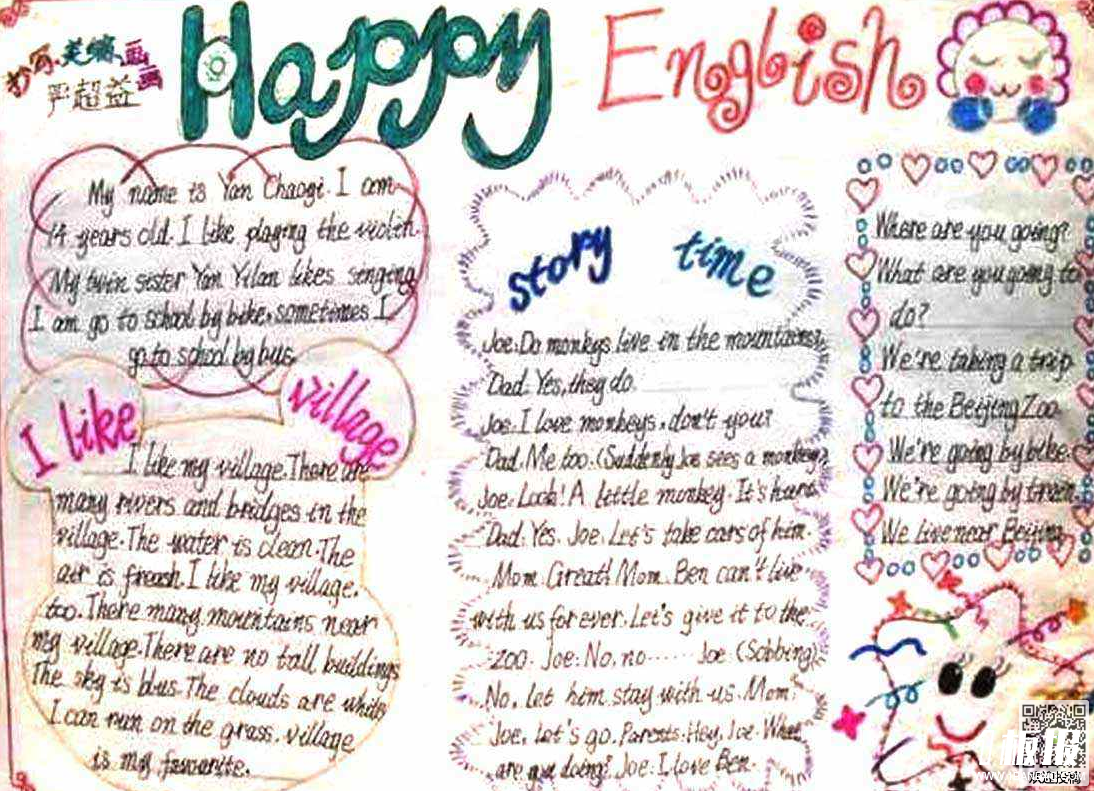 抄写.美编.画画
严超益
Happy English
My name is Yan Chaoyi. I am
14 years old. I like playing the violin.
My twin sister Yan Yilan likes singing
I am go to school by bike, sometimes I
go to school by bus.
I like village
I like my village. There are
many rivers and bridges in the
village. The water is clean. The
air is freash I like my village.
too. There many mountains near
my village. There are no tall buildings
The sky is blus. The clouds are white
I can run on the grass. village
is my favourite.
story time
Joe: Do monkeys live in the mountains?
Dad: Yes, they do.
Joe: I love monkeys, don't you?
Dad: Me too. (Suddenly Joe sees a monkey)
Joe: Look! A little monkey. It's hurt.
Dad: Yes, Joe. Let's take cars of him.
Mom: Great! Mom: Ben can't live
with us forever. Let's give it to the
zoo. Joe: No, no...... Joe (Sobbing)
No, let him stay with us. Mom:
Joe, let's go. Parents: Hey, Joe. What
are you doing? Joe: I love Ben.
Where are you going?
What are you going to
do?
We're taking a trip
to the Beijing Zoo.
We're going by bike.
We're going by train.
We live near Beijing